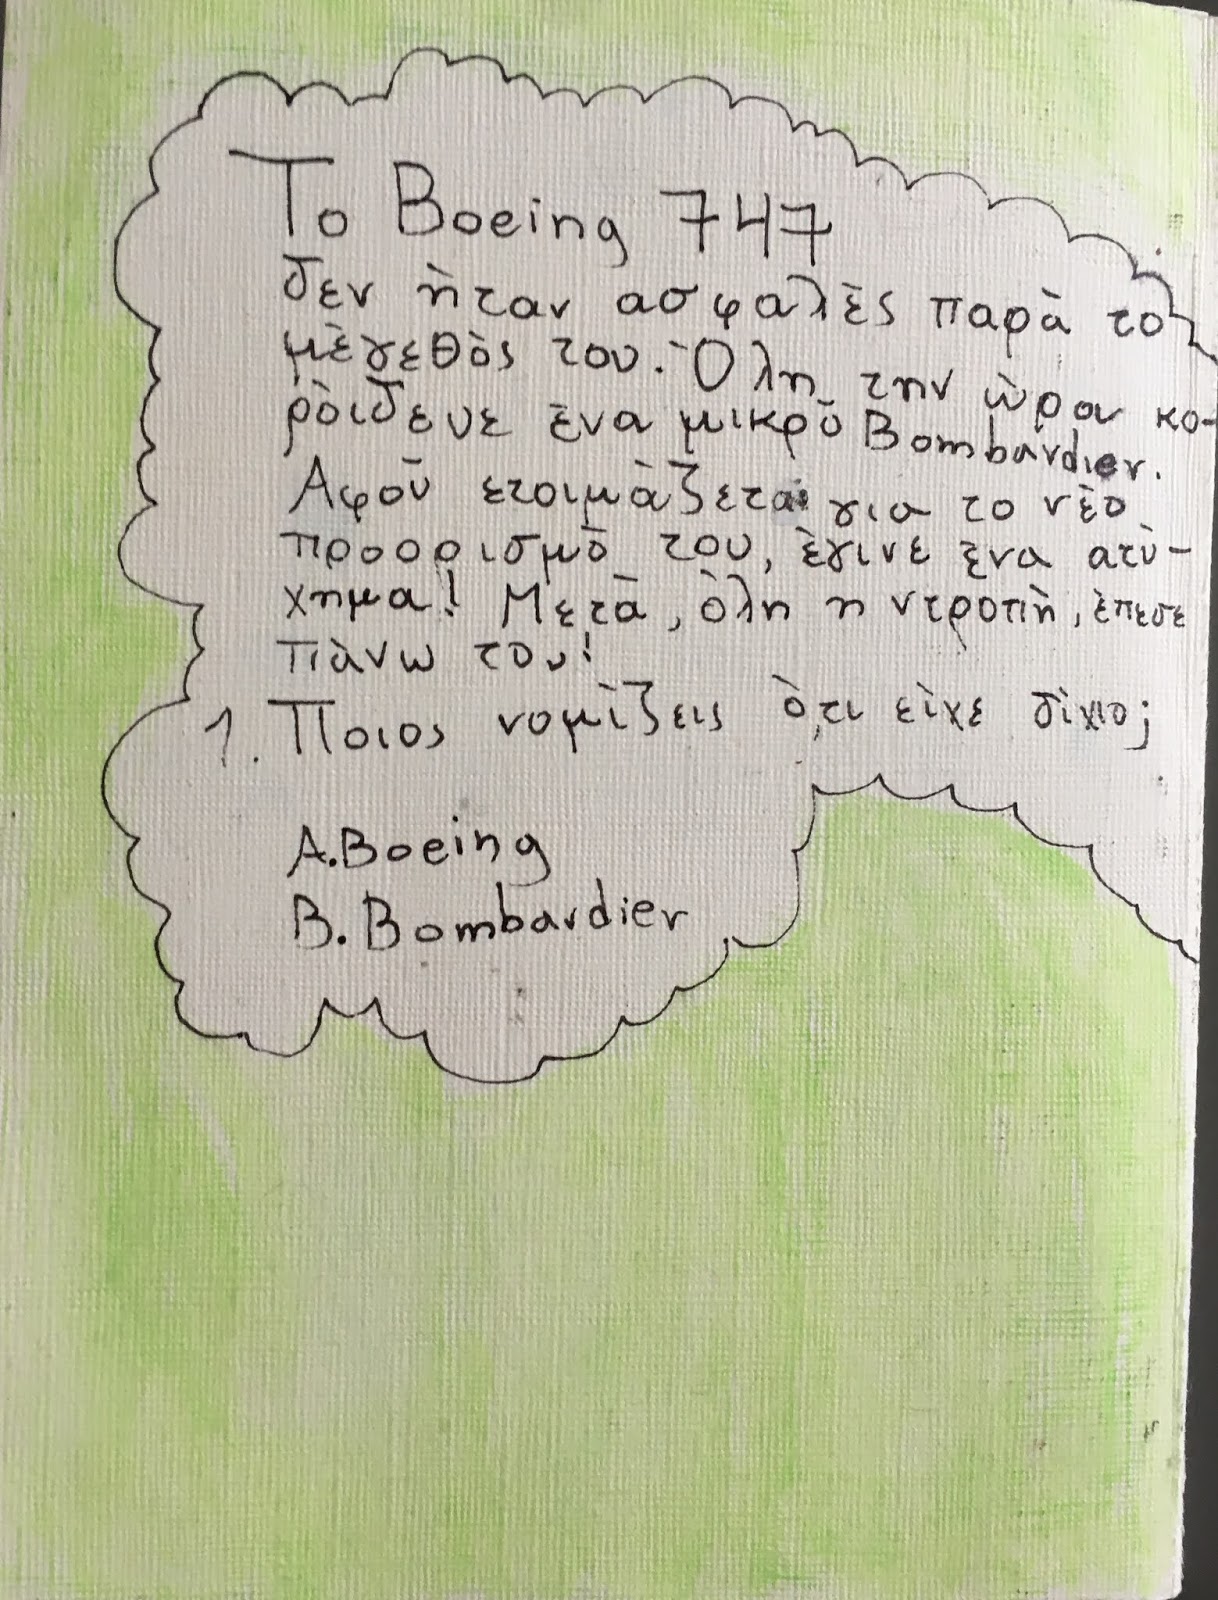 Το Boeing 747
δεν ήταν ασφαλές παρά το
μέγεθός του. Όλη την ώρα κο-
ρόιδευε ένα μικρό Bombardier.
Αφού ετοιμάζεται για το νέο
προορισμό του, έγινε ένα ατύ-
χημα! Μετά, όλη η ντροπή, έπεσε
πάνω του!
1. Ποιος νομίζεις ό,τι είχε δίκιο;
A. Boeing
B. Bombardier